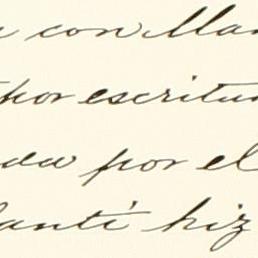 con Man
por escritu
da por el
anti hiz